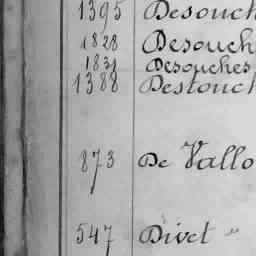 1395 Desouch
1828 Desouch
1831 Desouches
1388 Destouch
873 De Vallo
547 Divet "